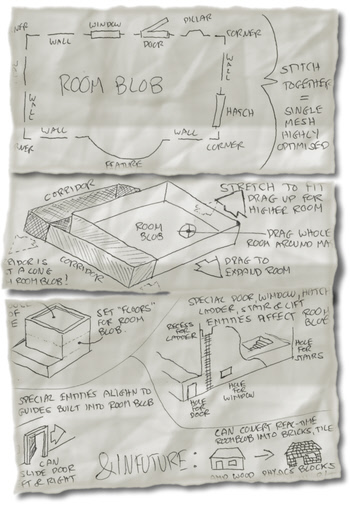 WINDOW
PILLAR
WALL
DOOR
CORNER
ROOM BLOB
WALL
WALL
HATCH
WALL
WALL
CORNER
FEATURE
STITCH
TOGETHER
=
SINGLE
MESH
HIGHLY
OPTIMISED
CORRIDOR
STRETCH TO FIT
DRAG UP FOR
HIGHER ROOM
ROOM
BLOB
DRAG WHOLE
ROOM AROUND MA
DRAG TO
EXPAND ROOM
CORRIDOR
IDOR IS
T A LONG
ROOM BLOB!
SET "FLOORS"
FOR ROOM
BLOB
SPECIAL DOOR, WINDOW, HATCH
LADDER, STAIR & LIFT
ENTITIES AFFECT ROOM
BLOB
RECESS
FOR
LADDER
HOLE
FOR
STAIRS
HOLE
FOR
DOOR
HOLE FOR
WINDOW
SPECIAL ENTITIES ALIGN TO
GUIDES BUILT INTO ROOM BLOB
CAN
SLIDE DOOR
FT & RIGHT
& IN FUTURE:
CAN COVERT REAL-TIME
ROOMBLOB INTO BRICKS, TILE
AND WOOD PHYSICS BLOCKS